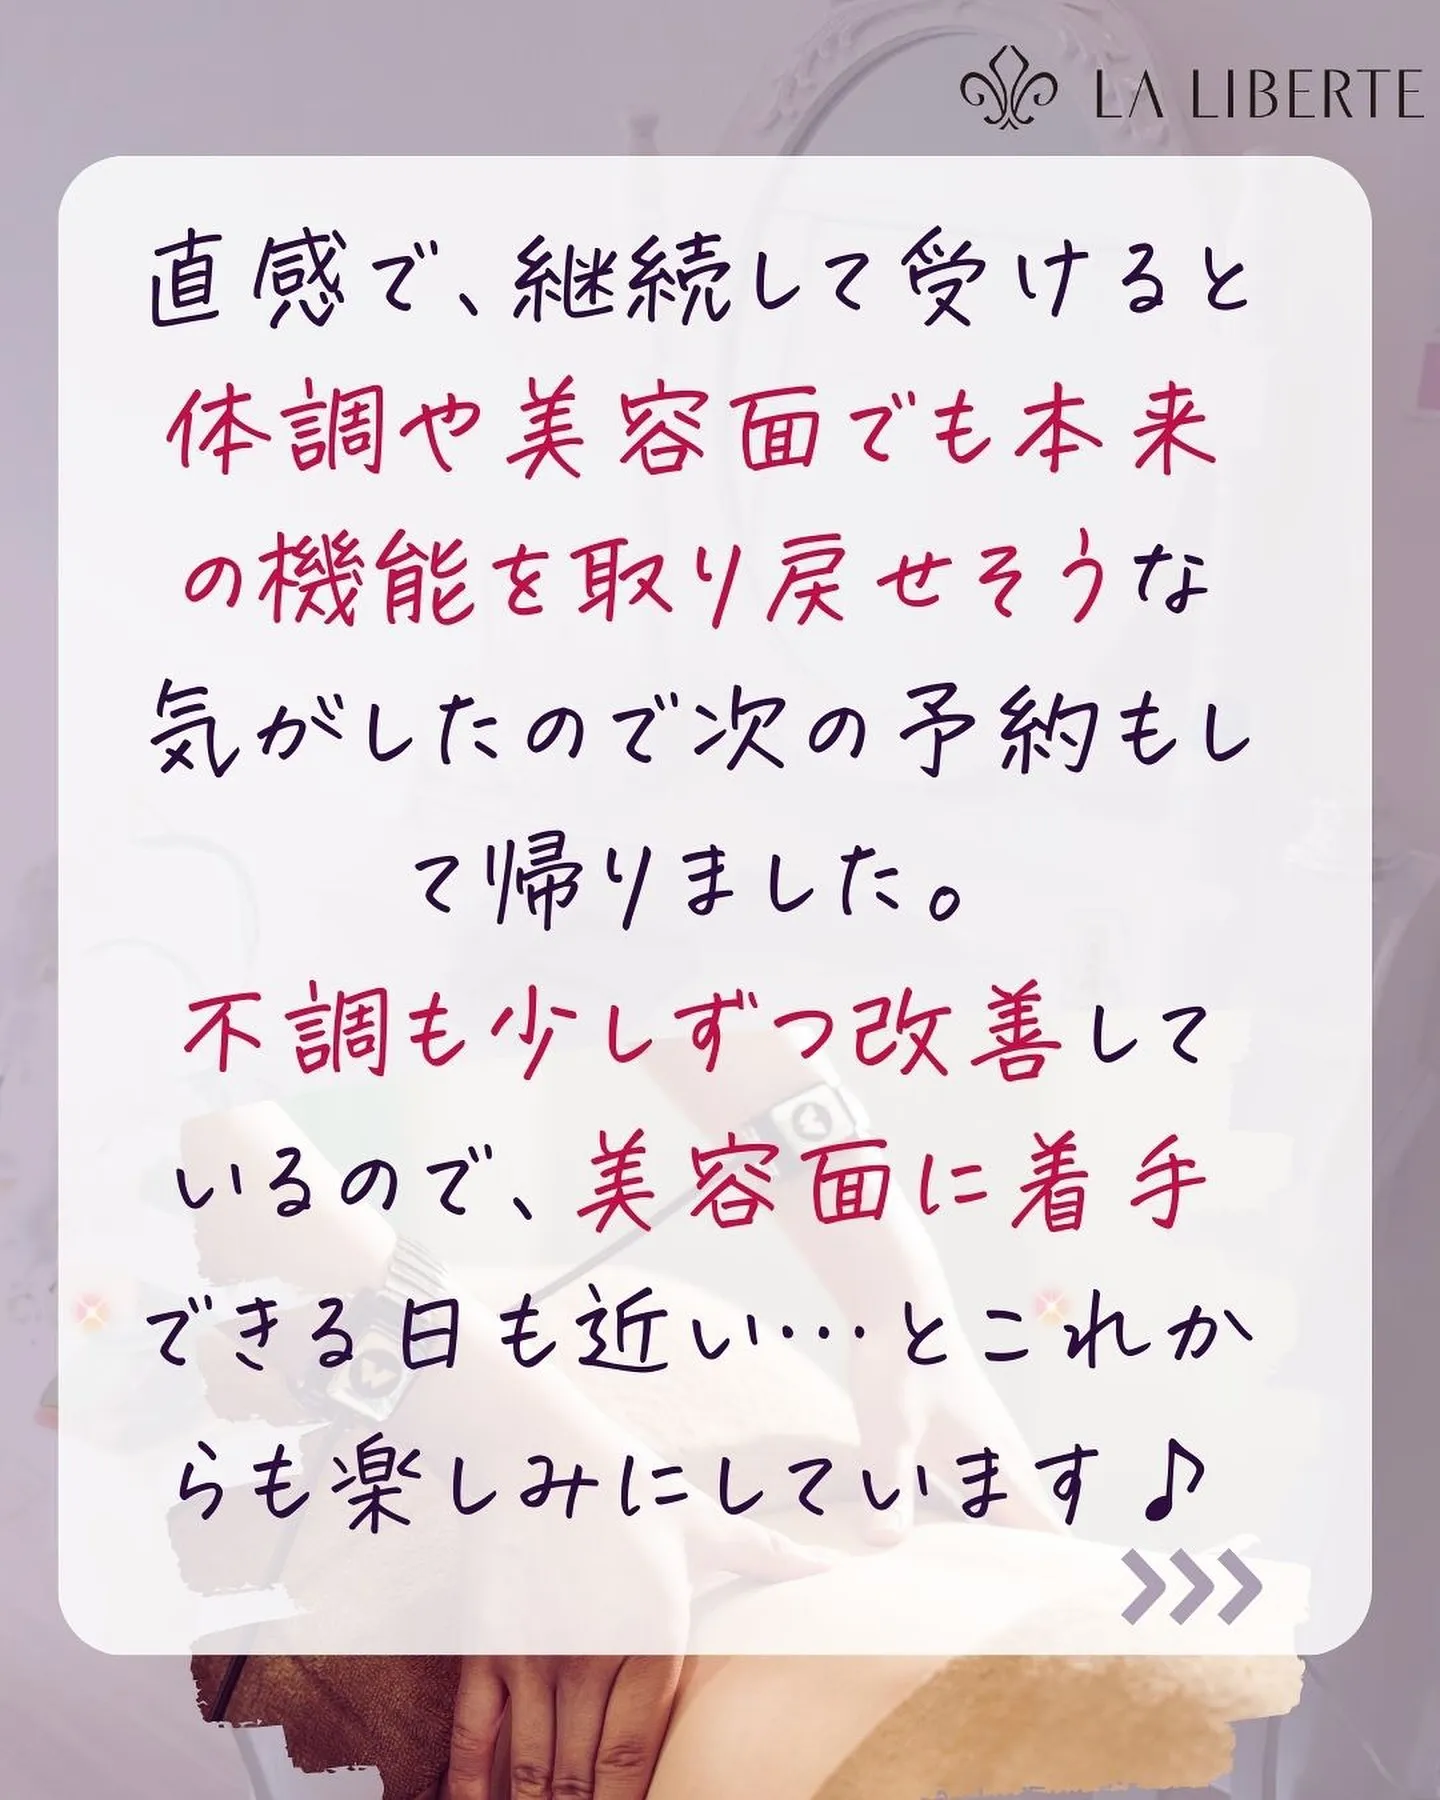 LA LIBERTE
直感で、継続して受けると
体調や美容面でも本来
の機能を取り戻せそうな
気がしたので次の予約もし
て帰りました。
不調も少しずつ改善して
いるので、美容面に着手
できる日も近い…とこれか
らも楽しみにしています♪